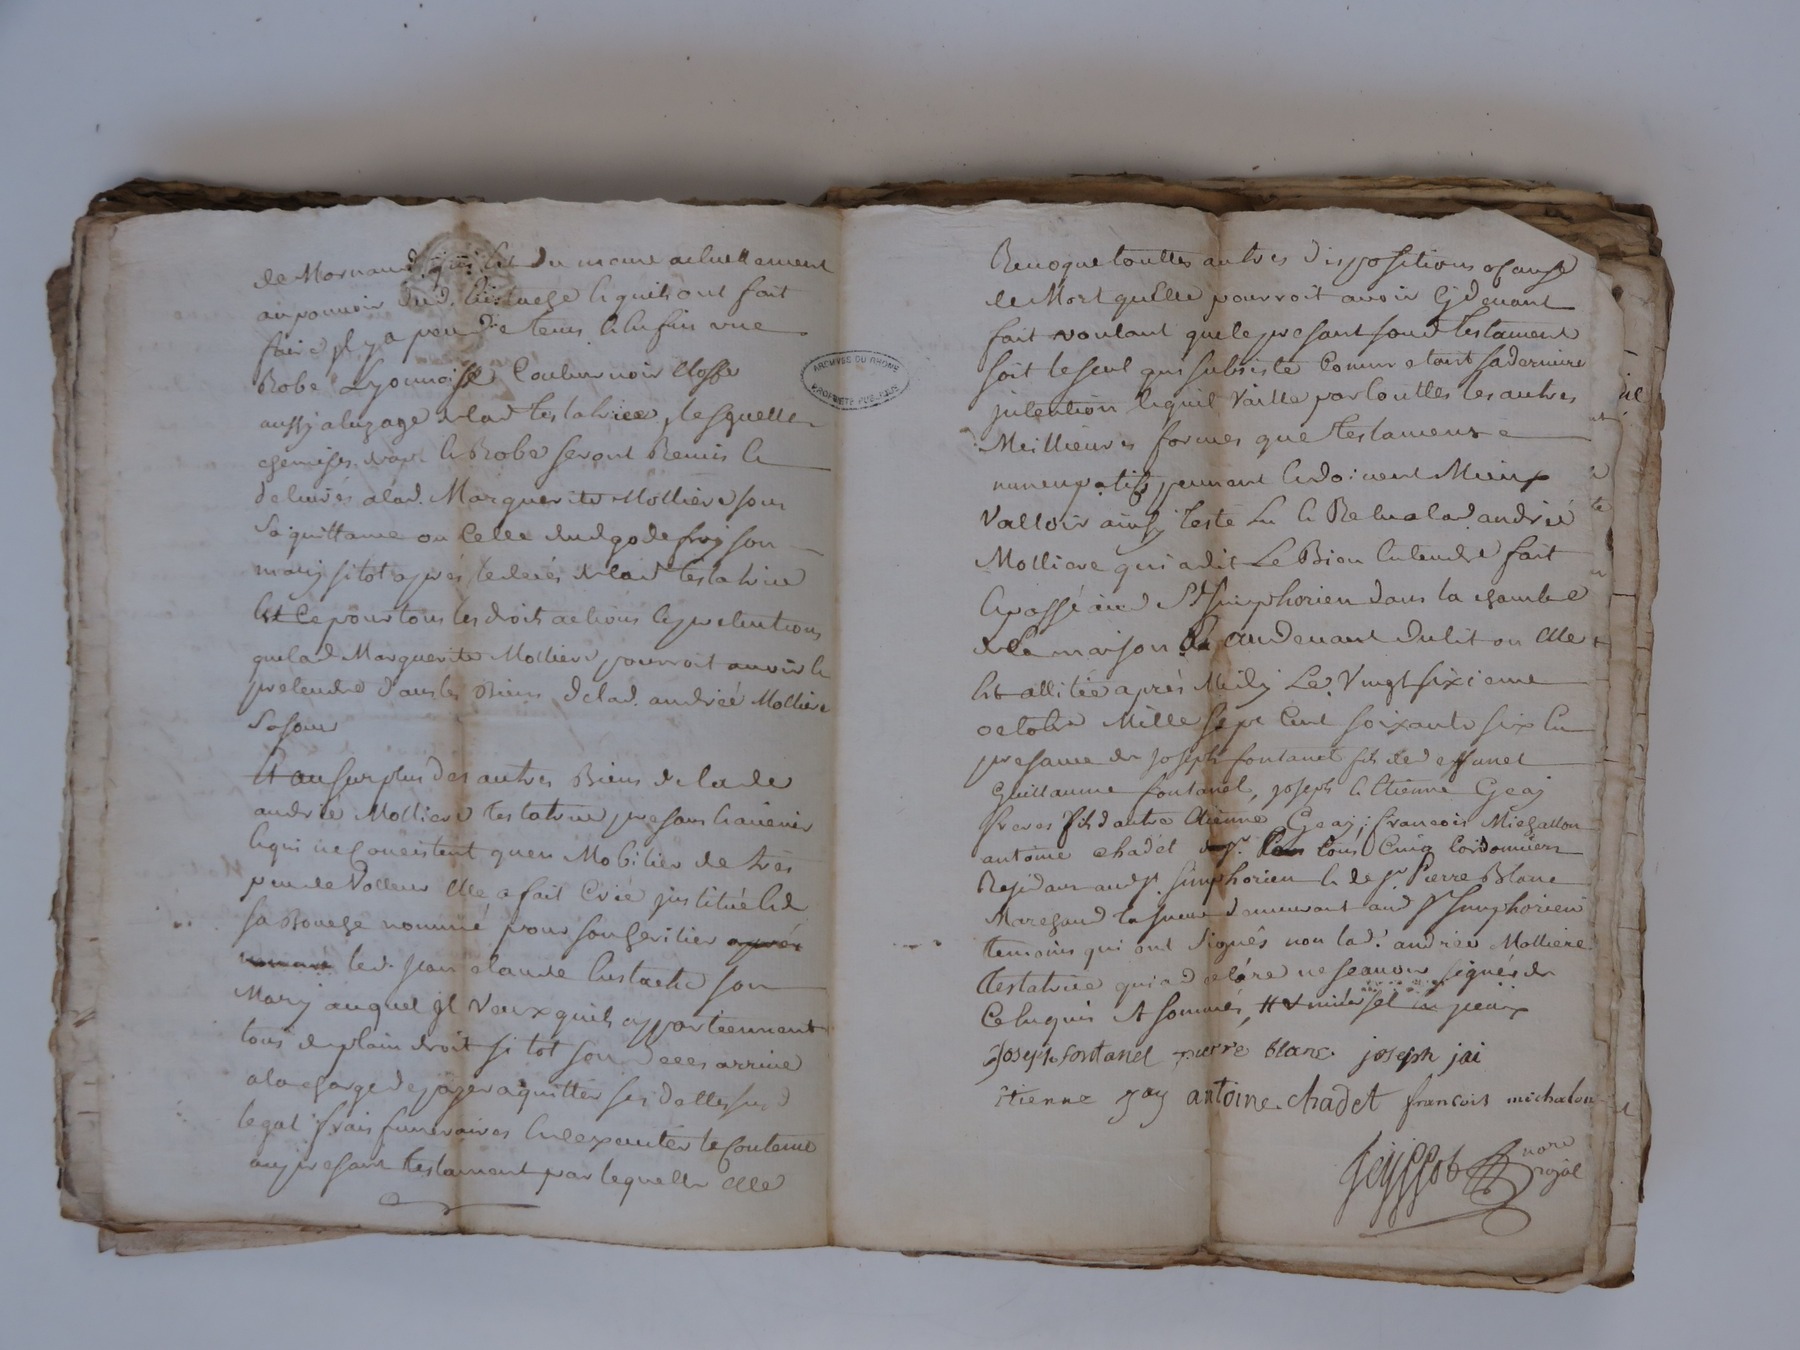 de Mornand qui est du meme actuellement
au pouvoir dud. Eustache et quils ont fait
faire il y a peu de tems et enfin une
Robe Lyonnoise Couleur noir étoffe
aussy a luzage de lad testatrice, lesquelles
chemises, drap et Robe seront Remis et
delivrés a lad. Marguerite Mollière sous
sa quittance ou Celle dud godefroy son
mary sitot après le deces de lad testatrice
Et Ce pour tous les droits actions et pretentions
que lad Marguerite Molliere pourroit avoir et
pretendre dans les Biens de lad. andrée Molliere
sa sœur
Et au surplus des autres Biens de lade
andrée Molliere testatrice presans et avenir
et qui ne Concistent quen Mobilier de très
peu de Valleur elle a fait Crée institué et de
sa Bouche nommé pour son heritier après
led. Jean claude Eustache son
Mary auquel il Veux quils appartiennent
tous de plain droit si tot son Deces arrivé
a la charge de payer aquitter ses dettes susd
legat frais funeraires et dexecuter le Contenu
au present testament par lequelle elle
Revoque touttes autres dispositions a cause
de Mort quelle pourroit avoir Cy devant
fait voulant que le presant soud testament
soit le seul qui subsiste Comme etant sa derniere
intention et quil Vaille par touttes les autres
Meillieures formes que testamens
nuncupatifs peuvent et doivent Mieux
Valloir ainsy testé Lu et Relu a lad. andrée
Molliere qui a dit Le Bien Entendre fait
et passé aud St simphorien dans la chambre
de la maison au devant du lit ou elle
Est allitée après Midy Le Vingt sixieme
octobre Mille sept Cent soixante six En
presance de Joseph fontanel fils de effunet
Guillaume fontanel, joseph et Etienne Geay
freres fils d'autre etienne Geay, françois Michallon
antoine chadet tous Cinq Cordonniers
Residans aud St. simphorien et de sr. Pierre Blanc
Marechand tanneur demeurant aud St simphorien
temoins qui ont signés non lad. andrée Molliere
testatrice qui a déclaré ne scavoir signer de
Ce Enquis et sommés,
Joseph fontanel pierre blanc joseph jai
etienne jay antoine chadet francois michalon
Feyssot nore
royal
ARCHIVES DU RHONE
PROPRIÉTÉ PUBLIQUE